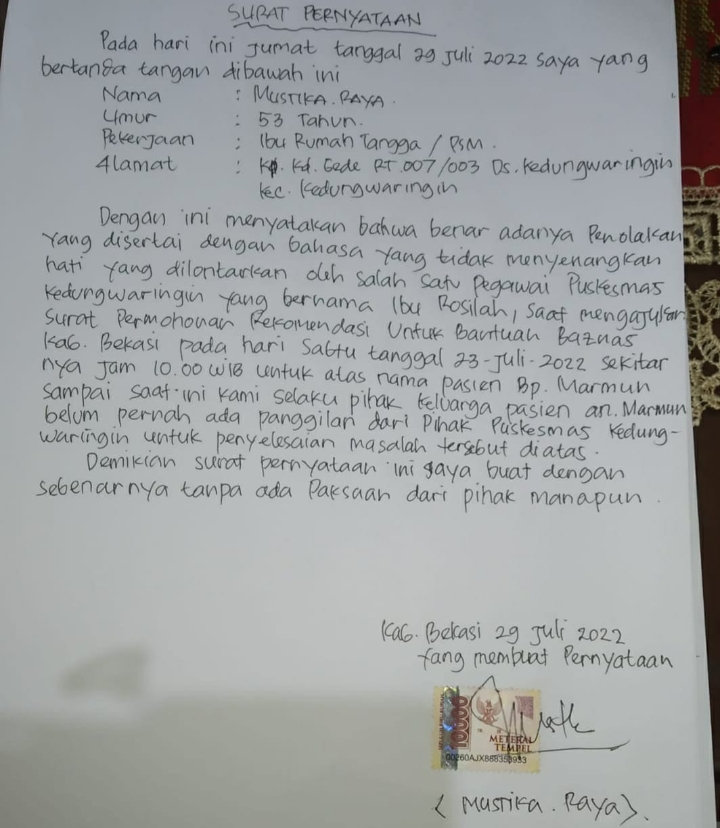 SURAT PERNYATAAN
Pada hari ini Jumat tanggal 29 Juli 2022 saya yang
bertanda tangan dibawah ini
Nama : MUSTIKA.RAYA.
Umur : 53 Tahun.
Pekerjaan : Ibu Rumah Tangga / PSM.
Alamat : Kp. Kd. Gede RT.007/003 Ds. Kedungwaringin
Kec. Kedungwaringin
Dengan ini menyatakan bahwa benar adanya Penolakan
yang disertai dengan bahasa yang tidak menyenangkan
hati yang dilontarkan oleh salah satu pegawai Puskesmas
Kedungwaringin yang bernama Ibu Rosilah, saat mengajukan
Surat Permohonan Rekomendasi Untuk Bantuan Baznas
Kab. Bekasi pada hari Sabtu tanggal 23-Juli-2022 sekitar
nya jam 10.00 WIB untuk atas nama pasien Bp. Marmun
sampai saat ini kami selaku pihak keluarga pasien an. Marmun
belum pernah ada panggilan dari Pihak Puskesmas Kedung-
waringin untuk penyelesaian masalah tersebut diatas.
Demikian surat pernyataan ini saya buat dengan
sebenarnya tanpa ada Paksaan dari pihak manapun.
Kab. Bekasi 29 Juli 2022
Yang membuat Pernyataan
10000
METERAI
TEMPEL
00260AJX888353933
( Mustika.Raya ).